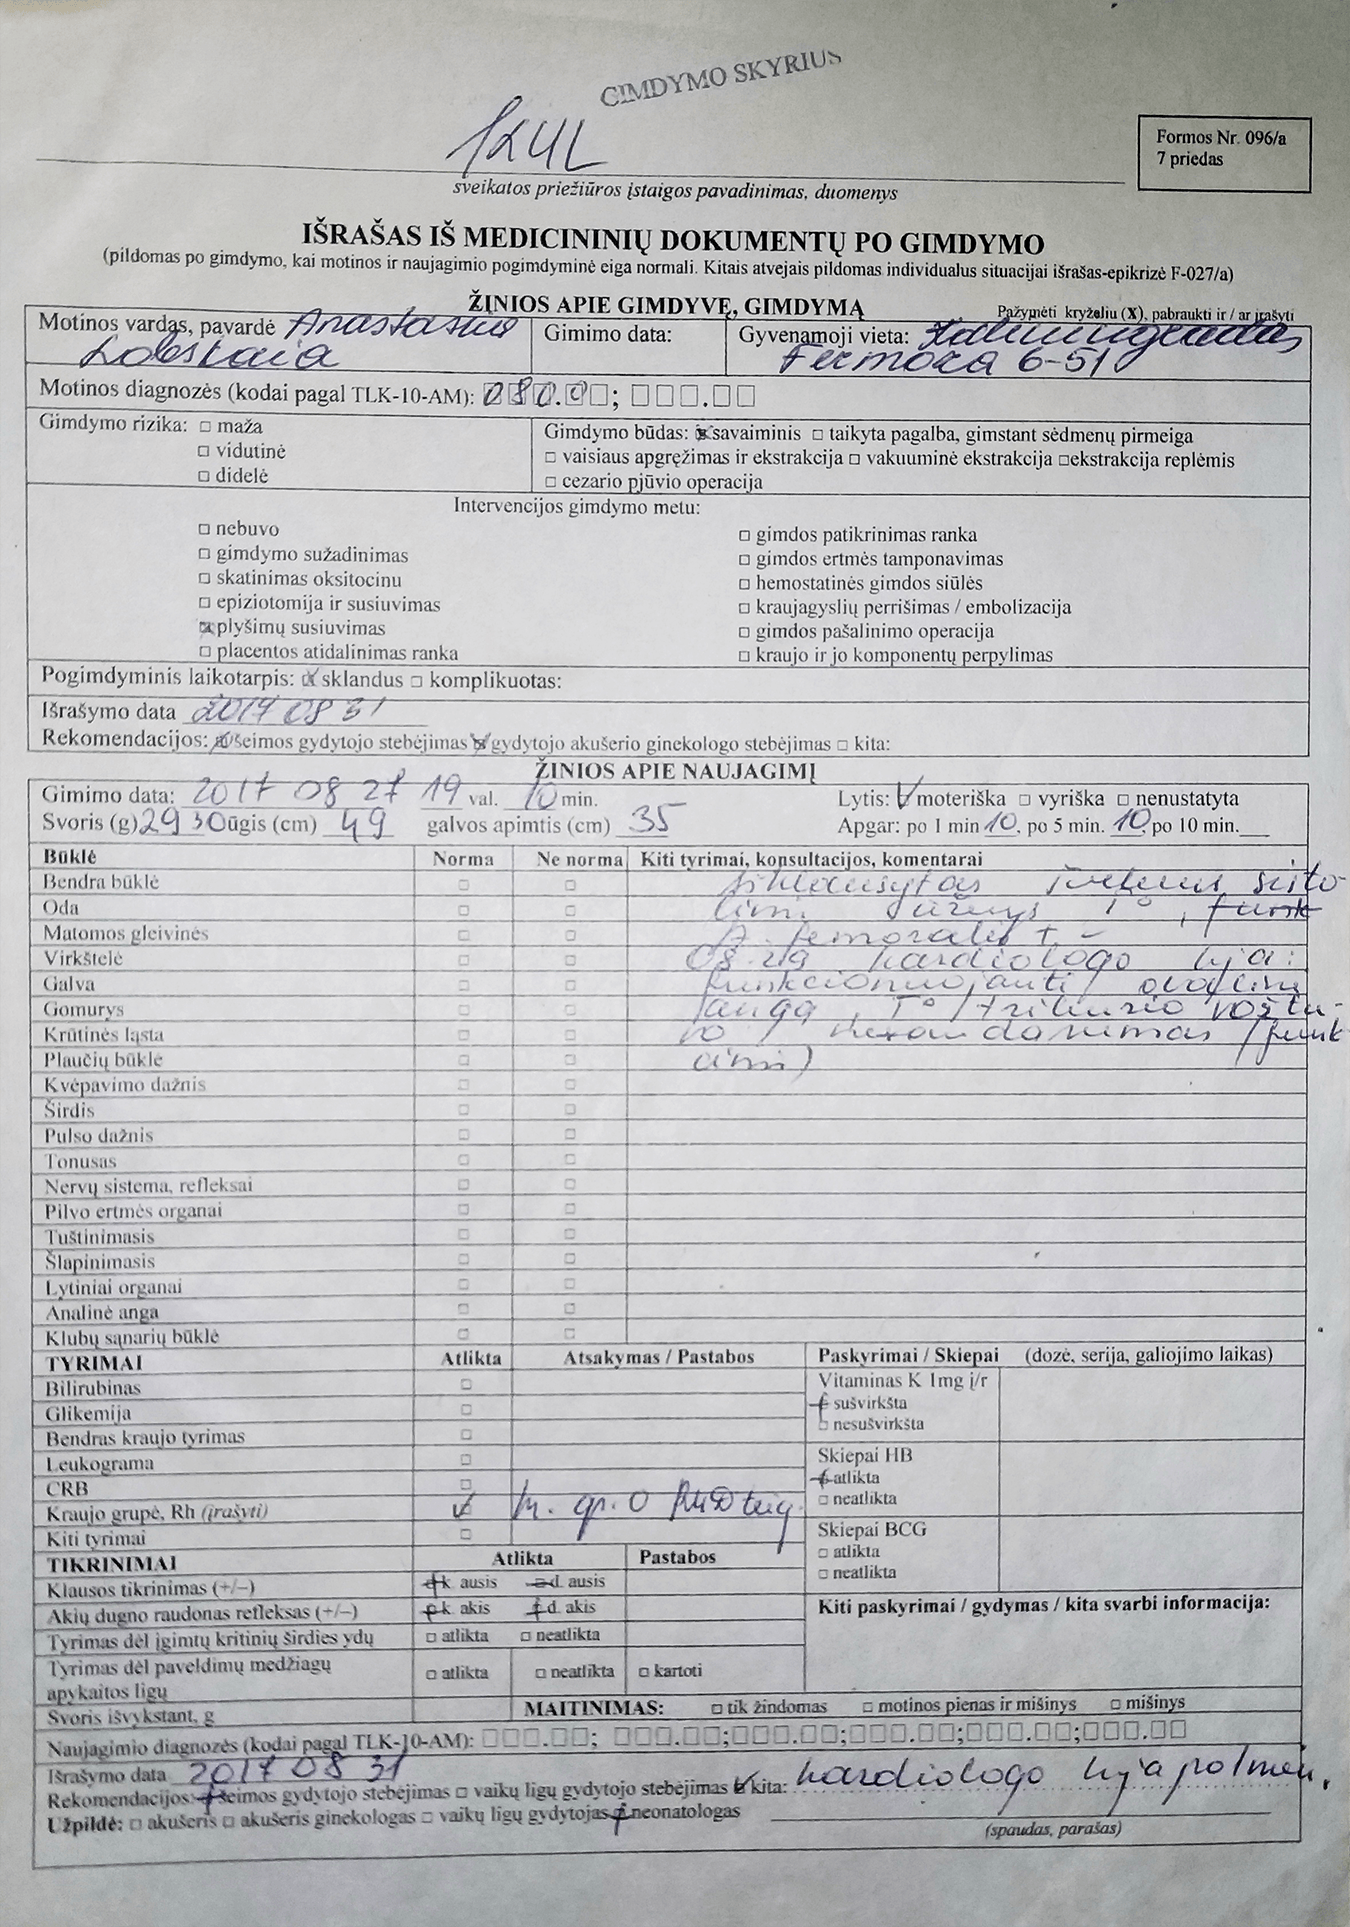 GIMDYMO SKYRIUS
Formos Nr. 096/a
7 priedas
sveikatos priežiūros įstaigos pavadinimas, duomenys
IŠRAŠAS IŠ MEDICININIŲ DOKUMENTŲ PO GIMDYMO
(pildomas po gimdymo, kai motinos ir naujagimio pogimdyminė eiga normali. Kitais atvejais pildomas individualus situacijai išrašas-epikrizė F-027/a)
ŽINIOS APIE GIMDYVĘ, GIMDYMĄ
Pažymėti kryželiu (X), pabraukti ir / ar įrašyti
Motinos vardas, pavardė Gimimo data: Gyvenamoji vieta:
6-51
Motinos diagnozės (kodai pagal TLK-10-AM): 080.0□; □□□.□□
Gimdymo rizika: □ maža
□ vidutinė
□ didelė
Gimdymo būdas: ☒ savaiminis □ taikyta pagalba, gimstant sėdmenų pirmeiga
□ vaisiaus apgręžimas ir ekstrakcija □ vakuuminė ekstrakcija □ekstrakcija replėmis
□ cezario pjūvio operacija
Intervencijos gimdymo metu:
□ nebuvo
□ gimdymo sužadinimas
□ skatinimas oksitocinu
□ epiziotomija ir susiuvimas
☒ plyšimų susiuvimas
□ placentos atidalinimas ranka
□ gimdos patikrinimas ranka
□ gimdos ertmės tamponavimas
□ hemostatinės gimdos siūlės
□ kraujagyslių perrišimas / embolizacija
□ gimdos pašalinimo operacija
□ kraujo ir jo komponentų perpylimas
Pogimdyminis laikotarpis: ☒ sklandus □ komplikuotas:
Išrašymo data 2017 08 31
Rekomendacijos: ☒ šeimos gydytojo stebėjimas ☒ gydytojo akušerio ginekologo stebėjimas □ kita:
ŽINIOS APIE NAUJAGIMĮ
Gimimo data: 2017 08 27 19 val. 10 min. Lytis: ☑ moteriška □ vyriška □ nenustatyta
Svoris (g) 2930 ūgis (cm) 49 galvos apimtis (cm) 35 Apgar: po 1 min 10, po 5 min. 10, po 10 min.
Būklė Norma Ne norma Kiti tyrimai, konsultacijos, komentarai
Bendra būklė □ □ švelnus sisto-
Oda □ □ linis ūžesys I°, funk
Matomos gleivinės □ □ A. femoralis + -
Virkštelė □ □ 08.29 kardiologo
Galva □ □ funkcionuojanti
Gomurys □ □ I° vožtu-
Krūtinės ląsta □ □ vo (funk
Plaučių būklė □ □ cinis)
Kvėpavimo dažnis □ □
Širdis □ □
Pulso dažnis □ □
Tonusas □ □
Nervų sistema, refleksai □ □
Pilvo ertmės organai □ □
Tuštinimasis □ □
Šlapinimasis □ □
Lytiniai organai □ □
Analinė anga □ □
Klubų sąnarių būklė □ □
TYRIMAI Atlikta Atsakymas / Pastabos
Bilirubinas □
Glikemija □
Bendras kraujo tyrimas □
Leukograma □
CRB □
Kraujo grupė, Rh (įrašyti) ☑ kr. gr. O teig.
Kiti tyrimai □
Paskyrimai / Skiepai (dozė, serija, galiojimo laikas)
Vitaminas K 1mg į/r
sušvirkšta
□ nesušvirkšta
Skiepai HB
atlikta
□ neatlikta
Skiepai BCG
□ atlikta
□ neatlikta
TIKRINIMAI Atlikta Pastabos
Klausos tikrinimas (+/–) k. ausis d. ausis
Akių dugno raudonas refleksas (+/–) k. akis d. akis
Tyrimas dėl įgimtų kritinių širdies ydų □ atlikta □ neatlikta
Tyrimas dėl paveldimų medžiagų
apykaitos ligų □ atlikta □ neatlikta □ kartoti
Kiti paskyrimai / gydymas / kita svarbi informacija:
Svoris išvykstant, g MAITINIMAS: □ tik žindomas □ motinos pienas ir mišinys □ mišinys
Naujagimio diagnozės (kodai pagal TLK-10-AM): □□□.□□; □□□.□□;□□□.□□;□□□.□□;□□□.□□;□□□.□□
Išrašymo data 2017 08 31
Rekomendacijos: šeimos gydytojo stebėjimas □ vaikų ligų gydytojo stebėjimas ☒ kita: kardiologo
Užpildė: □ akušeris □ akušeris ginekologas □ vaikų ligų gydytojas neonatologas
(spaudas, parašas)